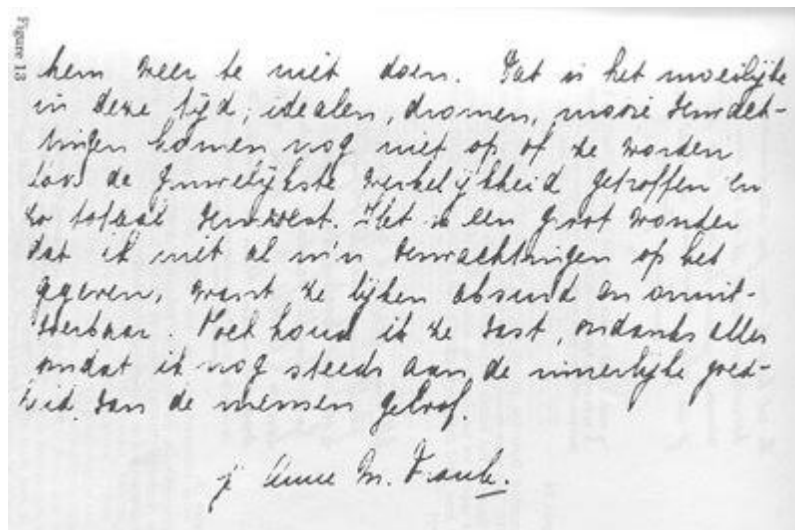 Figure 13
hem weer te niet doen. Dat is het moeilijke
in deze tijd; idealen, dromen, mooie verwach-
tingen komen nog niet op of ze worden
door de gruwelijkste werkelijkheid getroffen en
zo totaal verwoest. Het is een groot wonder
dat ik niet al m'n verwachtingen op het
gegeven, want ze lijken absurd en onuit-
voerbaar. Toch houd ik ze vast, ondanks alles
omdat ik nog steeds aan de innerlijke goed-
heid van de mensen geloof.
je Anne M. Frank.